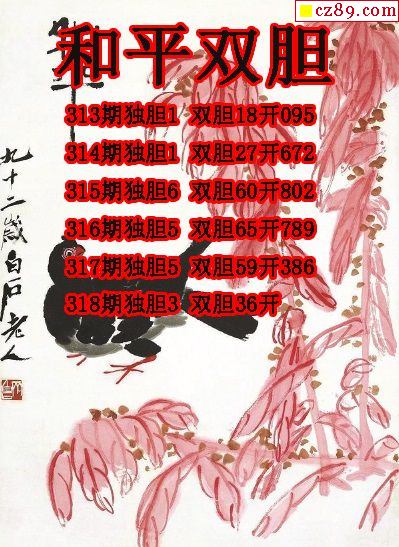 cz89.com
和平双胆
313期独胆1 双胆18开095
314期独胆1 双胆27开672
315期独胆6 双胆60开802
316期独胆5 双胆65开789
317期独胆5 双胆59开386
318期独胆3 双胆36开
九十二岁白石老人